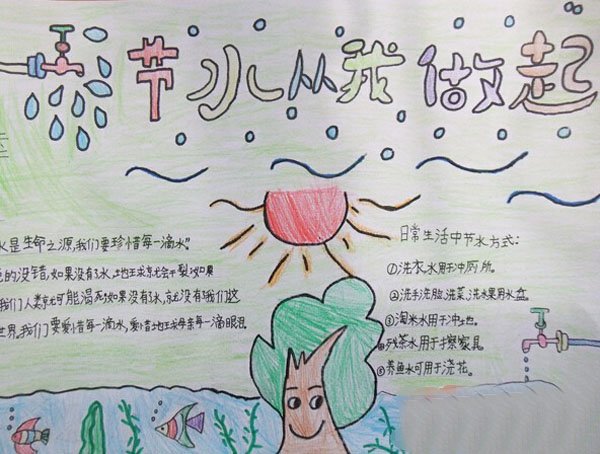 节水从我做起
水是生命之源,我们要珍惜每一滴水"
的没错,如果没有了水,地球就会干裂,如果
我们人类就可能渴死,如果没有了水,就没有我们这
世界,我们要爱惜每一滴水,爱惜地球母亲每一滴眼泪.
日常生活中节水方式:
①洗衣水用于冲厕所。
②洗手洗脸,洗菜,洗水果用水盆。
③淘米水用于冲土地。
④残茶水用于擦家具。
⑤养鱼水可用于浇花。